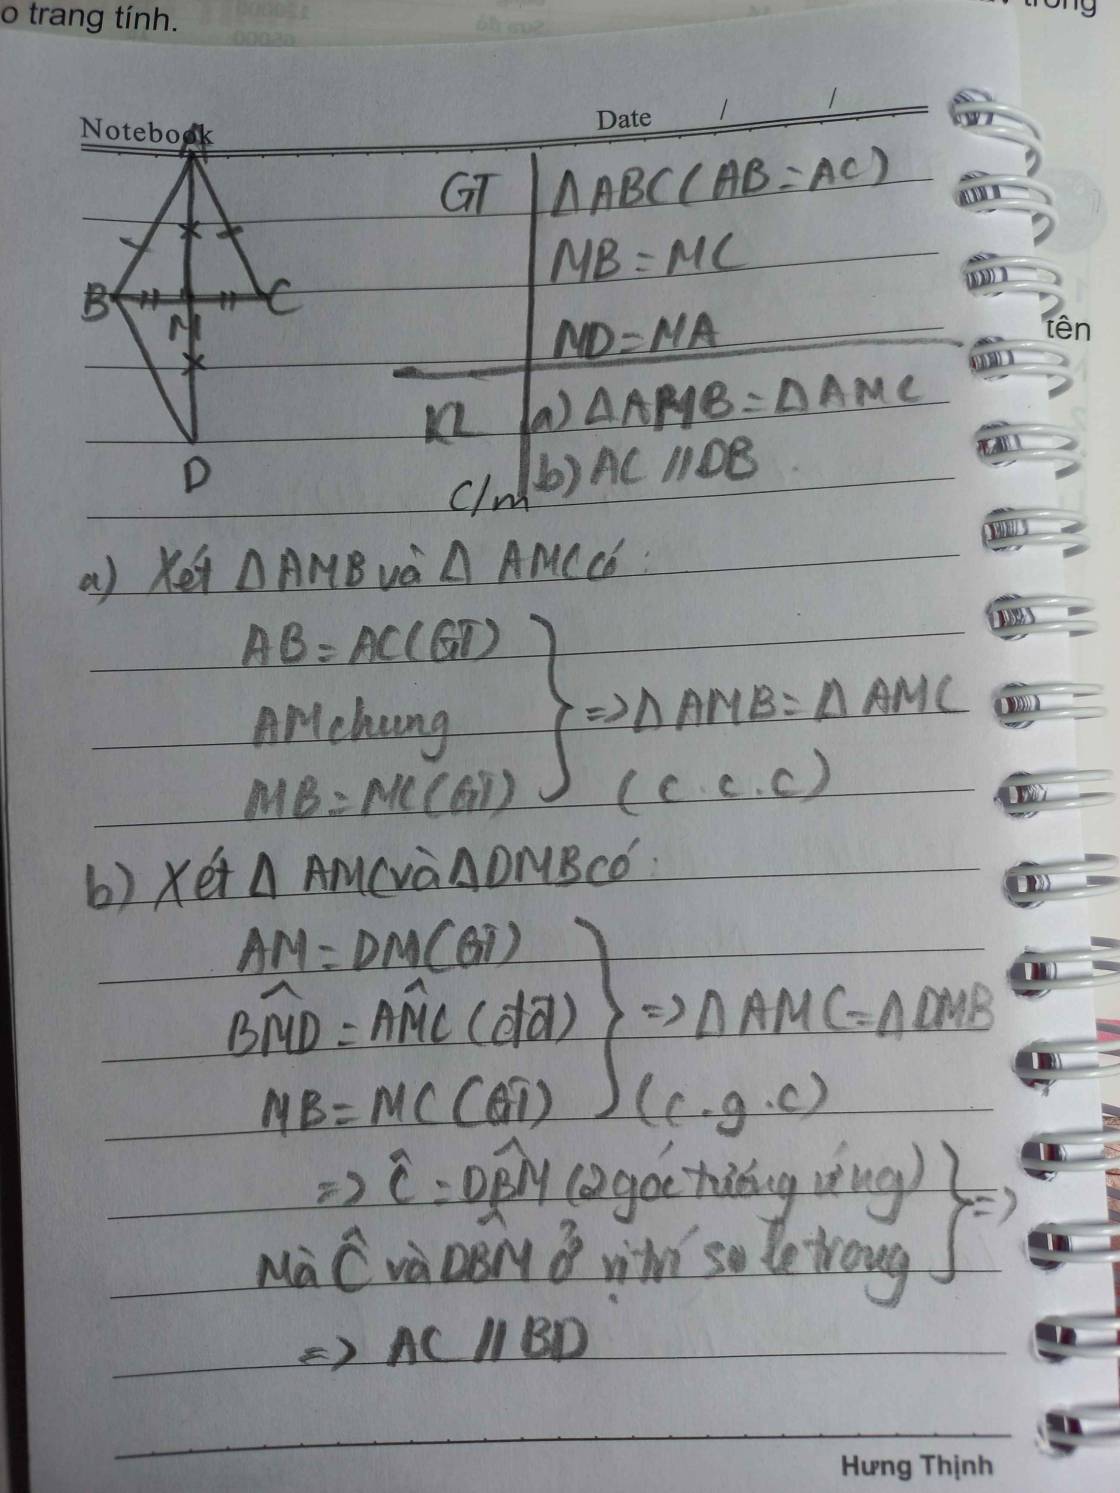 o trang tính.
Notebook
Date / /
A
GT
ΔABC(AB=AC)
MB=MC
MD=MA
B
M
C
D
tên
KL
a) ΔAMB=ΔAMC
b) AC//DB
C/m
a) Xét ΔAMB và Δ AMC có:
AB=AC(GT)
AM chung
=> Δ AMB=Δ AMC
MB=MC(GT)
(c.c.c)
b) Xét Δ AMC và ΔDMB có:
AM=DM(GT)
BM̂D = AM̂C (đđ)
=> Δ AMC=ΔDMB
MB=MC(GT)
(c.g.c)
=> Ĉ = DB̂M (2 góc tướng ứng)
=>
Mà Ĉ và DB̂M ở vị trí so le trong
=> AC // BD
Hưng Thịnh